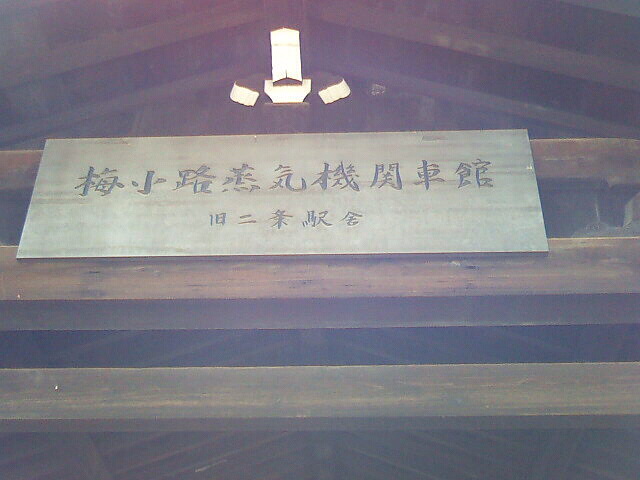 梅小路蒸気機関車館
旧二条駅舎